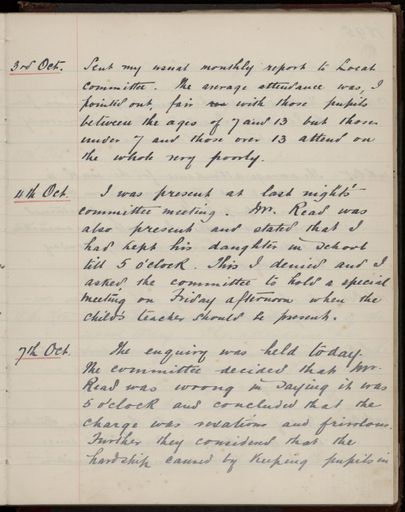 3rd Oct. Sent my usual monthly report to Local
committee. The average attendance was, I
pointed out, fair with those pupils
between the ages of 7 and 13 but those
under 7 and those over 13 attend on
the whole very poorly.
4th Oct. I was present at last night's
committee meeting. Mr. Read was
also present and stated that I
had kept his daughter in school
till 5 o'clock. This I denied and I
asked the committee to hold a special
meeting on Friday afternoon when the
child's teacher should be present.
7th Oct. The enquiry was held today.
The committee decided that Mr.
Read was wrong in saying it was
5 o'clock and concluded that the
charge was vexatious and frivolous.
Further they considered that the
hardship caused by keeping pupils in